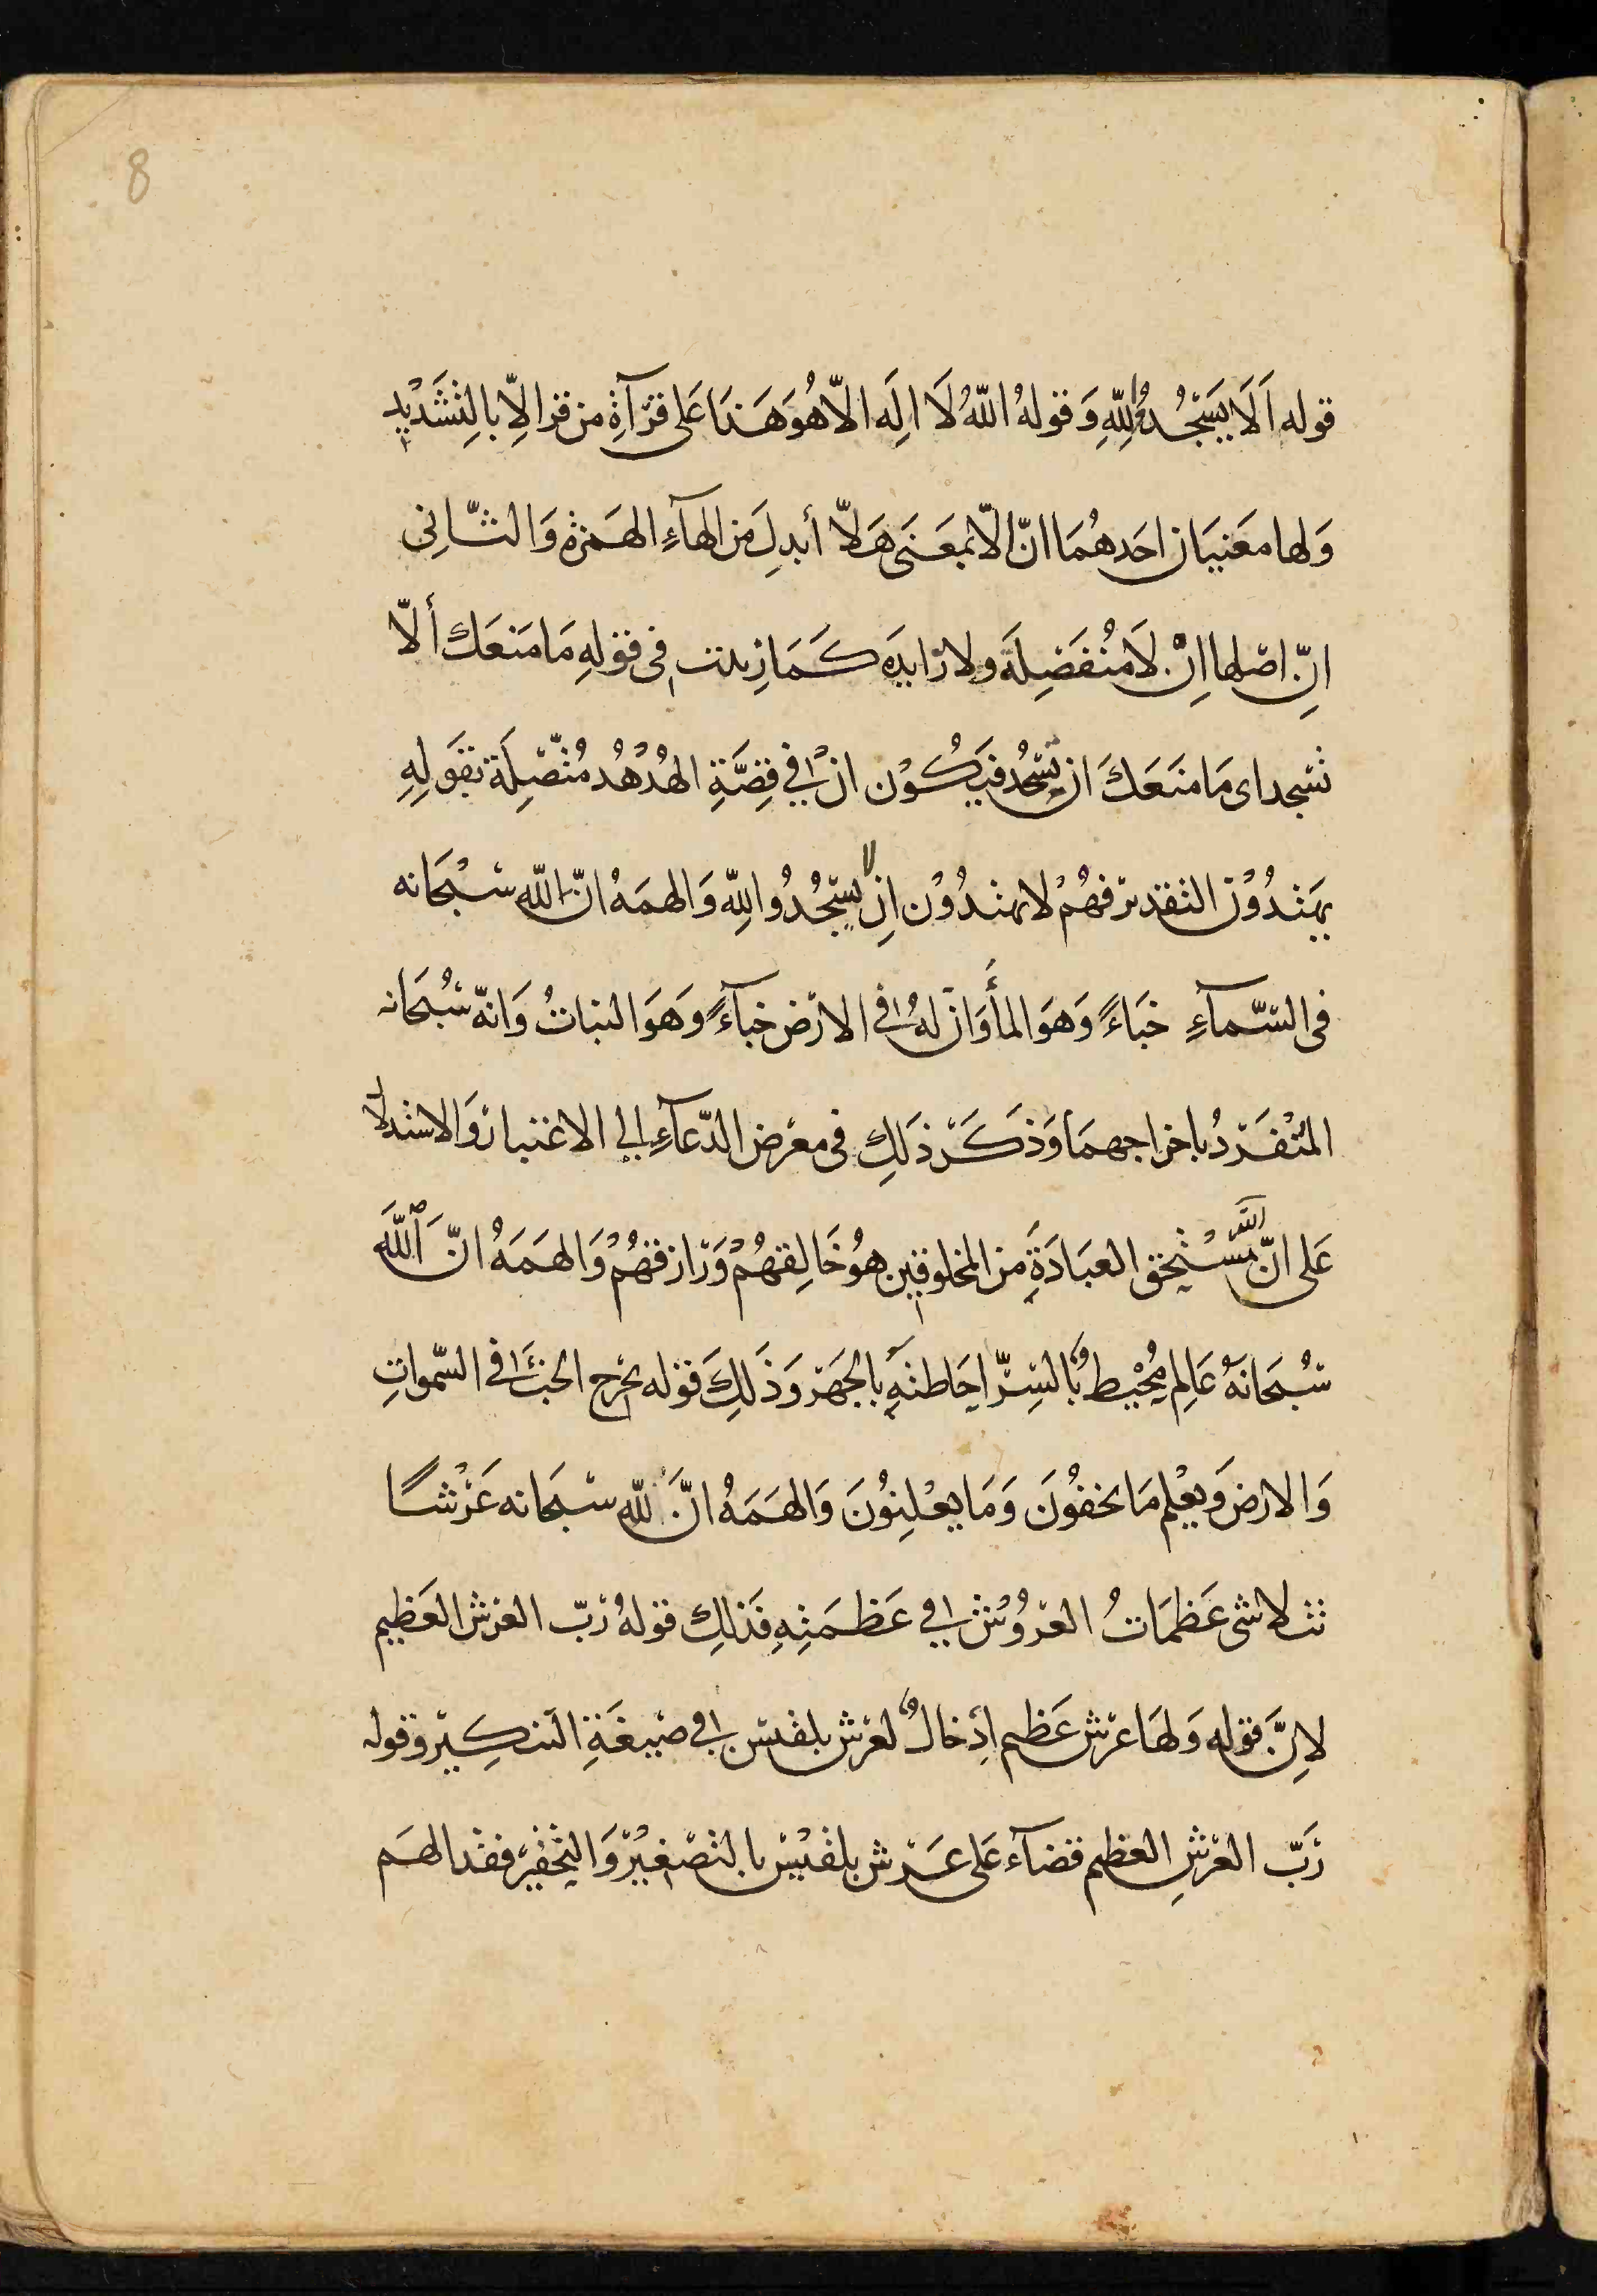 8
قوله اَلَا يَسَجُدُوا لِلّهِ وَقولهُ اللّهُ لَا الَه الّا هُوَ وَهَذَا عَلى قرآةِ من قرا الاّ بالتشَدْيدِ
وَلها معَنيَان احَدهُمَا انّ الّا بمعَنَى هَلّا أبدلَ مَن الهآءِ الهَمزة وَالثّانِى
انّ اصْلها انْ لَا مُنْفَصِلَة ولا زايدَه كَمَا زيدت فى قوْلهِ مَا مَنعَك ألّا
تسْجد اى مَا مَنَعَكَ ان تسْجُد فيَكُوْن انْ فِي قِصَّةِ الهُدْهُد مُتّصِلَة بقَولِهِ
يهَتدُوْن التقديْر فهُمْ لا يهتدُوْن انِ لا يسْجُدُوا لِلّه وَالهمَهُ انّ اللّه سُبْحَانه
فى السّمآءِ خَباءً وَهوَ المأ وَانّ لهُ فى الارْض خبآءً وَهوَ النباتُ وَانهّ سُبْحَانه
المُتْفَرّدُ باخراجهمَا وَذكَرَ ذَلِك فى معرْض الدّعآءِ الى الاعْتبارْ وَالاسْتدلال
عَلى انّ اللّه مُسْتْحِق العبَادَةِ مَن المخلوقين هوُ خَالِقهُمْ وَرَازقهُمْ وَالهَمَهُ انّ اَللّهَ
سُبْحَانَهُ عَالِم مُحِيْط بالسّرّ احَاطتهِ بالجَهرْ وَذَلِكَ قوْله يخرج الخبْئَ فى السّمواتِ
وَالارْضَ وَيعْلم مَا يخفوُنَ وَمَا يعْلِنوُنَ وَالهَمَهُ انَّ للّهِ سْبحَانه عَرْشًا
تتلاشى عَظمَاتُ العرُوُشْ فى عَظمَتِهِ فذَلِكَ قوْلهُ رْبّ العرْش العَظِيم
لانَّ قوْله وَلهَا عرْش عَظِيم ادْخالٌ لعرْش بلقيْس فى صيْغَةِ التنكِيْر وقوله
رَبّ العَرْشِ العظِيم قضآء عَلى عَرْش بلقيْس بالتصْغيْر وَالتحْقيْر فقد الهَم